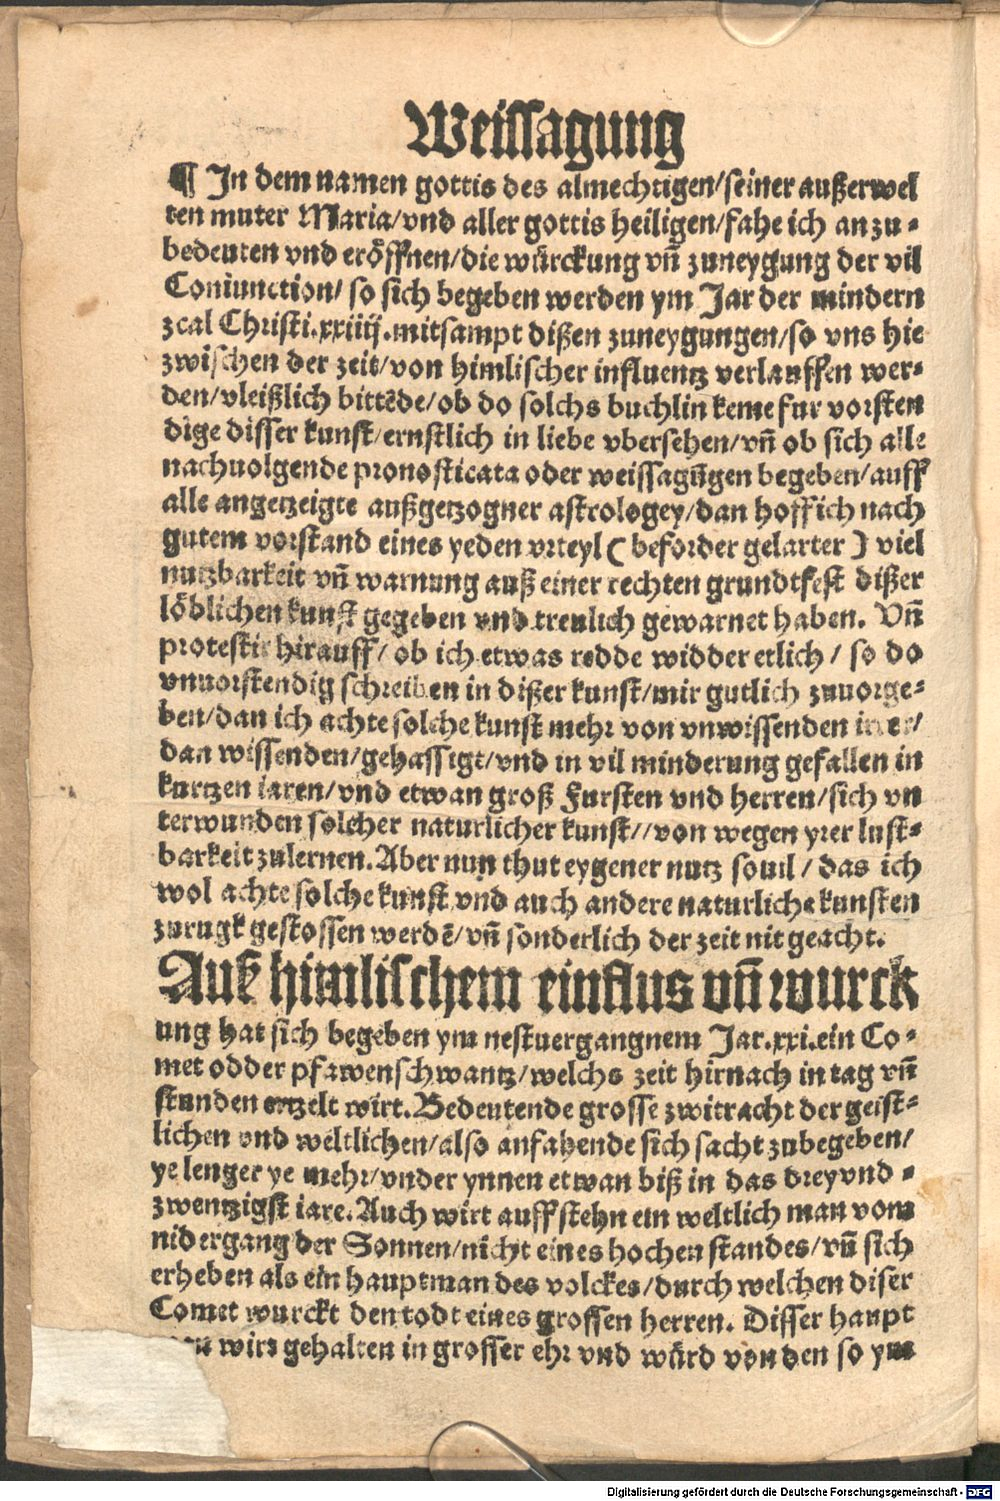 Weissagung
¶ In dem namen gottis des almechtigen/seiner außerwel
ten muter Maria/vnd aller gottis heiligen/fahe ich an zu-
bedeuten vnd eröffnen/die würckung vñ zuneygung der vil
Coniunction/ so sich begeben werden ym Jar der mindern
zcal Christi.xxiiij.mitsampt dißen zuneygungen/so vns hie
zwischen der zeit/von himlischer influentz verlauffen wer-
den/vleißlich bittēde/ob do solchs buchlin keme fur vorsten
dige disser kunst/ernstlich in liebe vbersehen/vñ ob sich alle
nachuolgende pronosticata oder weissagūgen begeben/auff
alle angetzeigte außgetzogner astrologey/dan hoff ich nach
gutem vorstand eines yeden vrteyl ( beforder gelarter ) viel
nutzbarkeit vñ warnung auß einer rechten grundtfest dißer
löblichen kunst gegeben vnd treulich gewarnet haben. Vñ
protestir hirauff/ ob ich etwas redde widder etlich / so do
vnuorstendig schreiben in dißer kunst/mir gutlich zuuorge-
ben/dan ich achte solche kunst mehr von vnwissenden
dan wissenden/gehassigt/vnd in vil minderung gefallen in
kurtzen iaren/vnd etwan groß Fursten vnd herren/sich vn
terwunden solcher naturlicher kunst//von wegen yrer lust-
barkeit zulernen.Aber nun thut eygener nutz souil / das ich
wol achte solche kunst vnd auch andere naturliche kunsten
zurugk gestossen werdē/vñ sonderlich der zeit nit geacht.
Auß himlischem einflus vñ wurck
ung hat sich begeben ym nestuergangnem Jar.xxi.ein Co-
met odder pfawenschwantz/welchs zeit hirnach in tag vñ
stunden ertzelt wirt.Bedeutende grosse zwitracht der geist-
lichen vnd weltlichen/also anfahende sich sacht zubegeben/
ye lenger ye mehr/vnder ynnen etwan biß in das dreyvnd-
zwentzigst iare.Auch wirt auffstehn ein weltlich man vom
nidergang der Sonnen/nicht eines hochen standes/vñ sich
erheben als ein hauptman des volckes/durch welchen diser
Comet wurckt den todt eines grossen herren. Disser haupt
wirt gehalten in grosser ehr vnd würd von den so ym
Digitalisierung gefördert durch die Deutsche Forschungsgemeinschaft - DFG